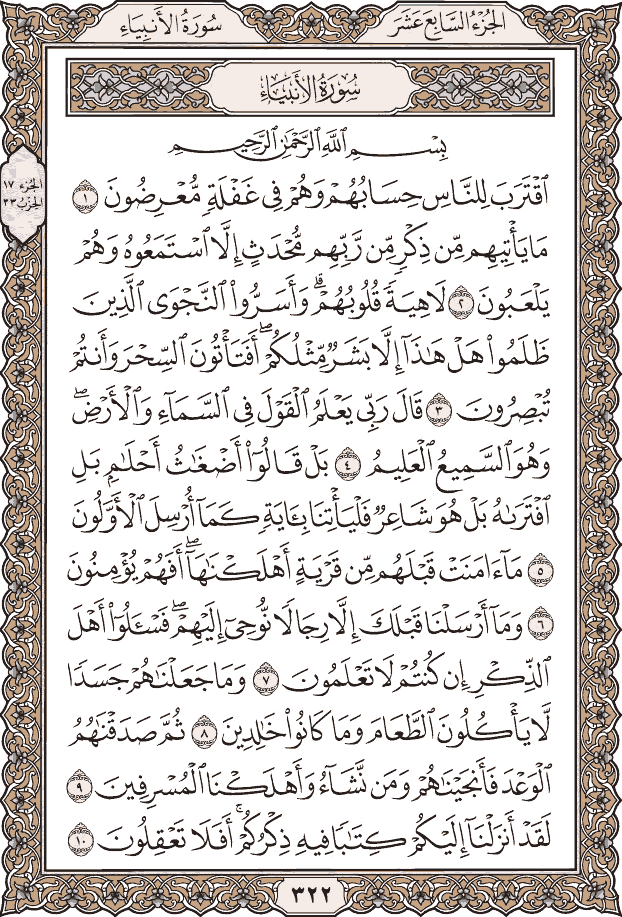 الجُزْءُ السَّابِعَ عَشَرَ
سُورَةُ الأَنبِيَاء
سُورَةُ الأَنبِيَاءِ
بِسْمِ ٱللَّهِ ٱلرَّحْمَٰنِ ٱلرَّحِيمِ
الجزء ١٧
الحزب ٣٣
ٱقْتَرَبَ لِلنَّاسِ حِسَابُهُمْ وَهُمْ فِى غَفْلَةٍ مُّعْرِضُونَ ١
مَا يَأْتِيهِم مِّن ذِكْرٍ مِّن رَّبِّهِم مُّحْدَثٍ إِلَّا ٱسْتَمَعُوهُ وَهُمْ
يَلْعَبُونَ ٢ لَاهِيَةً قُلُوبُهُمْ ۗ وَأَسَرُّوا۟ ٱلنَّجْوَى ٱلَّذِينَ
ظَلَمُوا۟ هَلْ هَٰذَآ إِلَّا بَشَرٌ مِّثْلُكُمْ ۖ أَفَتَأْتُونَ ٱلسِّحْرَ وَأَنتُمْ
تُبْصِرُونَ ٣ قَالَ رَبِّى يَعْلَمُ ٱلْقَوْلَ فِى ٱلسَّمَآءِ وَٱلْأَرْضِ ۖ
وَهُوَ ٱلسَّمِيعُ ٱلْعَلِيمُ ٤ بَلْ قَالُوٓا۟ أَضْغَٰثُ أَحْلَٰمٍۭ بَلِ
ٱفْتَرَىٰهُ بَلْ هُوَ شَاعِرٌ فَلْيَأْتِنَا بِـَٔايَةٍ كَمَآ أُرْسِلَ ٱلْأَوَّلُونَ
٥ مَآ ءَامَنَتْ قَبْلَهُم مِّن قَرْيَةٍ أَهْلَكْنَٰهَآ ۖ أَفَهُمْ يُؤْمِنُونَ
٦ وَمَآ أَرْسَلْنَا قَبْلَكَ إِلَّا رِجَالًا نُّوحِىٓ إِلَيْهِمْ ۖ فَسْـَٔلُوٓا۟ أَهْلَ
ٱلذِّكْرِ إِن كُنتُمْ لَا تَعْلَمُونَ ٧ وَمَا جَعَلْنَٰهُمْ جَسَدًا
لَّا يَأْكُلُونَ ٱلطَّعَامَ وَمَا كَانُوا۟ خَٰلِدِينَ ٨ ثُمَّ صَدَقْنَٰهُمُ
ٱلْوَعْدَ فَأَنجَيْنَٰهُمْ وَمَن نَّشَآءُ وَأَهْلَكْنَا ٱلْمُسْرِفِينَ ٩
لَقَدْ أَنزَلْنَآ إِلَيْكُمْ كِتَٰبًا فِيهِ ذِكْرُكُمْ ۖ أَفَلَا تَعْقِلُونَ ١٠
٣٢٢